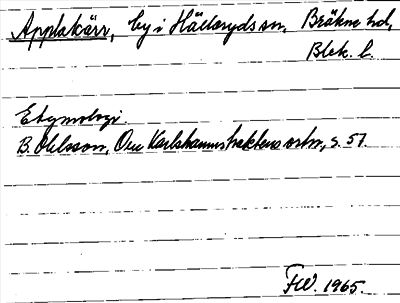 Applakärr, by i Hällaryds sn, Bräkne hd,
Blek. l.
Etymologi.
B. Ohlsson, Om Karlshamnstraktens ortn, s. 57.
FW. 1965.